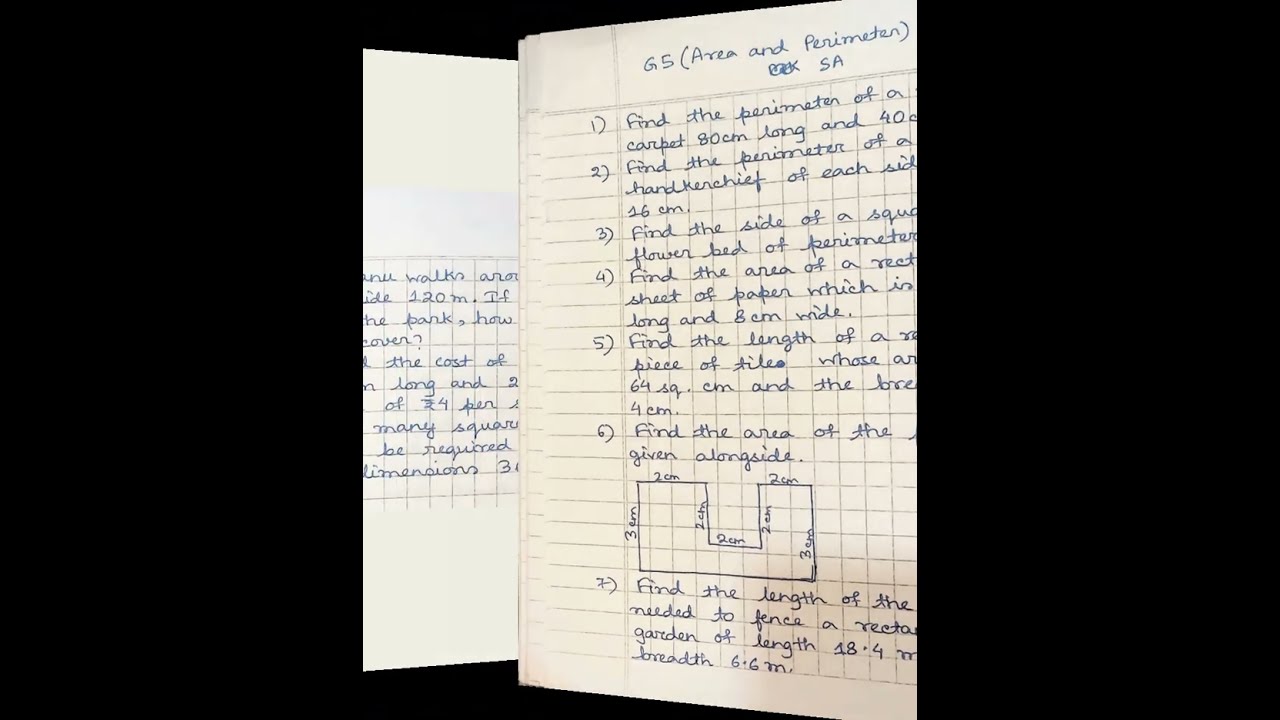 anu walks aro
ide 120m. If
the park, how
cover?
the cost of
long and 2
of ₹4 per
many squar
be required
dimensions 3
G5 (Area and Perimeter)
SA
1) Find the perimeter of a
carpet 80cm long and 40c
2) Find the perimeter of a
handkerchief of each sid
16 cm.
3) Find the side of a squa
flower bed of perimeter
4) Find the area of a rect
sheet of paper which is
long and 8cm wide.
5) Find the length of a re
piece of tile whose ar
64 sq. cm and the bre
4cm.
6) Find the area of the
given alongside.
2cm 2cm
3cm 2cm 2cm 3cm
2cm
7) Find the length of the
needed to fence a recta
garden of length 18.4 m
breadth 6.6m.